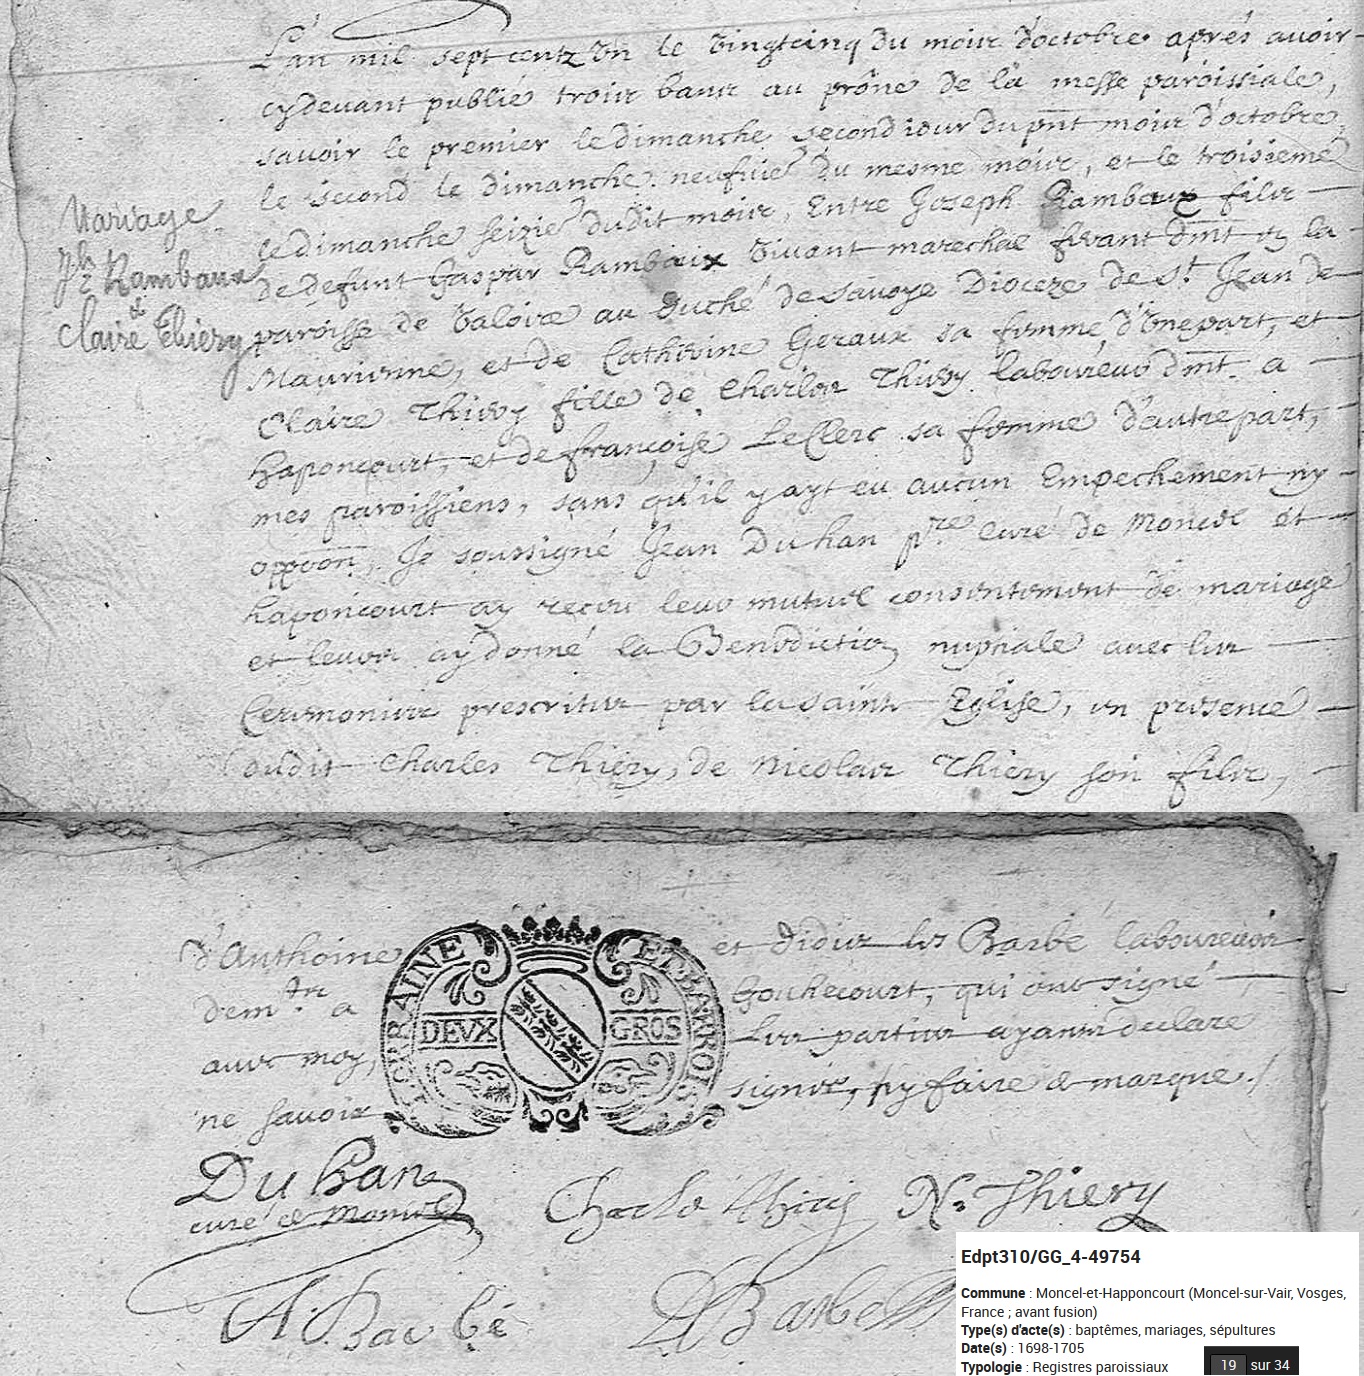 L'an mil sept centz un le vingtcinq du mois d'octobre après avoir
cydevant publié trois bans au prône de la messe paroissiale,
savoir le premier le dimanche second iour du pnt mois d'octobre
le second le dimanche neufvie du mesme mois, et le troisieme
le dimanche seizie dudit mois, Entre Joseph Rambaux fils
de defunt Gaspar Rambaux vivant marechal ferant dmt en la
paroisse de Valoire au duché de Savoye Dioceze de St Jean de
Maurienne, et de Catherine Geraux sa femme d'une part, et
Claire Thiery fille de Charles Thiery laboureur dmt a
haponcourt, et de françoise LeClerc sa femme d'autre part,
mes paroissiens, sans qu'il y ayt eu aucun Empechement ny
oppoon, Je soussigné Jean Duhan pre curé de Moncel et
haponcourt ay receu leur mutuel consentement de mariage
et leurs ay donné la Benediction nuptiale avec les
Ceremonies prescrites par la sainte Eglise, en presence
dudit Charles Thiery, de Nicolas Thiery son fils,
Mariage
Jh Rambaux
&
Claire Thiery
d'Anthoine et Didier les Barbé laboureurs
demts a Gouhecourt, qui ont signé
avec moy, Les parties ayants declaré
ne savoir signer, ny faire de marque./
LORRAINE ET BARROIS
DEVX GROS
DuHan
curé de Moncel
Charle Thiery N. Thiery
A Barbé
D Barbe
Edpt310/GG_4-49754
Commune : Moncel-et-Happoncourt (Moncel-sur-Vair, Vosges,
France ; avant fusion)
Type(s) d'acte(s) : baptêmes, mariages, sépultures
Date(s) : 1698-1705
Typologie : Registres paroissiaux
19 sur 34